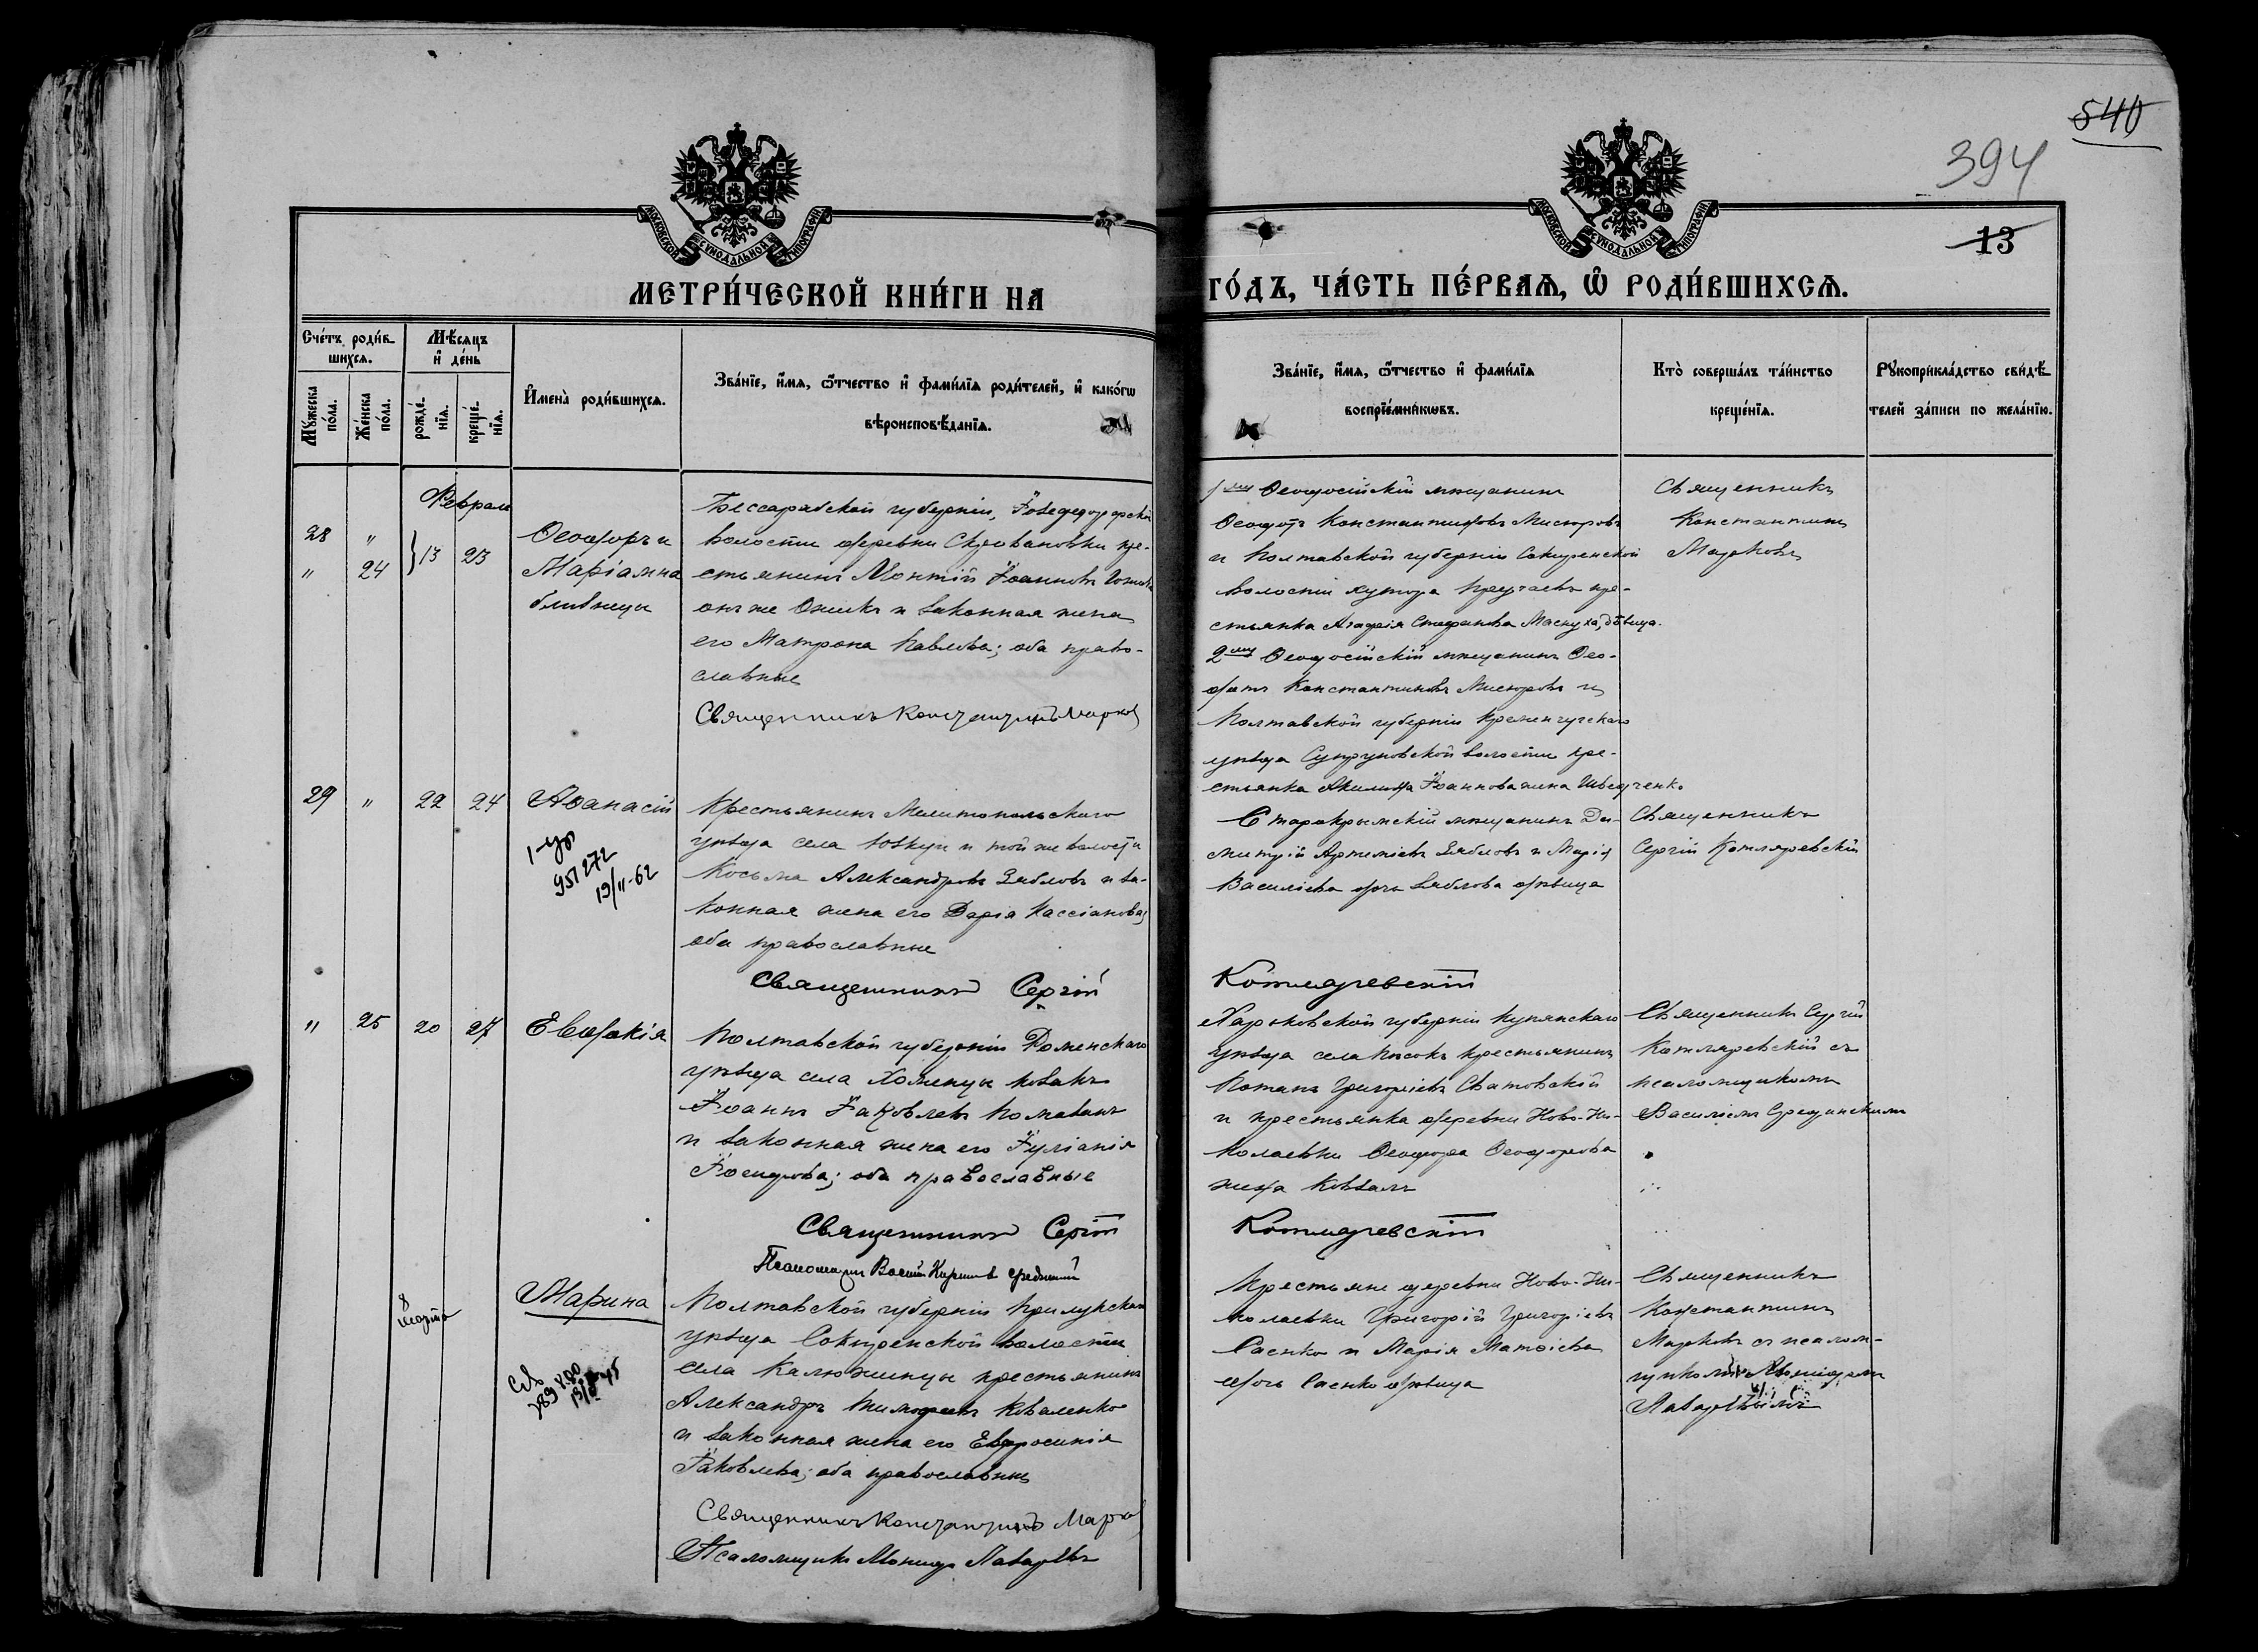 540
394
13
МОСКОВСКОЙ СѴНОДАЛЬНОЙ ТИПОГРАФІИ
МОСКОВСКОЙ СѴНОДАЛЬНОЙ ТИПОГРАФІИ
МЕТРИ́ЧЕСКОЙ КНИ́ГИ НА
ГО́ДЪ, ЧА́СТЬ ПЕ́РВАЯ, Ѡ҆ РОДИ́ВШИХСЯ.
Сче́тъ роди́в
шихся.
Мꙋ́жеска по́ла.
Же́нска по́ла.
Мѣ́сяцъ
и҆ де́нь
рожде́-
нїя.
креще́-
нїя.
И҆мена̀ роди́вшихся.
Зва́нїе, и҆́мя, ѻ҆́тчество и҆ фами́лїя роди́телей, и҆ како́гѡ
вѣроисповѣ́данїя.
Зва́нїе, и҆́мя, ѻ҆́тчество и҆ фами́лїя
воспрїе́мникѡвъ.
Кто̀ соверша́лъ та́инство
креще́нїя.
Рꙋкоприкла́дство свидѣ́-
телей за́писи по жела́нїю.
Февраль
28 "
" 24
13 23
Ѳеодоръ и
Маріамна
близнецы
Бессарабской губерніи,
волости деревни кре-
стьянинъ Іоанновъ
онъ же и законная жена
его Матрона Павлова; оба право-
славные
Священникъ Константинъ Марковъ
1-му Ѳеодосійскій мѣщанинъ
Константиновъ
и Полтавской губерніи Сокиренской
волости хутора кре-
стьянка Агафія Стефанова дѣвица.
2-му Ѳеодосійскій мѣщанинъ Ѳео-
Константиновъ и
Полтавской губерніи Кременчугскаго
уѣзда волости кре-
стьянка Іоаннова жена
Священникъ
Константинъ
Марковъ
29 " 22 24
Аѳанасій
951272
19/II-62
Крестьянинъ Мелитопольскаго
уѣзда села и той же волости
Косьма Александровъ Зябловъ и за-
конная жена его Дарія Кассіанова;
оба православные
Священникъ Сергій Котляревскій
Старокрымскій мѣщанинъ Ди-
митрій Артеміевъ Зябловъ и Марія
Василіева дочь Зяблова дѣвица
Священникъ
Сергій Котляревскій
" 25 20 27
Евдокія
Полтавской губерніи Роменскаго
уѣзда села Хоминцы козакъ
Іоаннъ Іаковлевъ
и законная жена его Іуліанія
Іосифова; оба православные
Священникъ Сергій Котляревскій
Псаломщикъ
Харьковской губерніи Купянскаго
уѣзда села Песокъ крестьянинъ
Григоріевъ Сватовскій
и крестьянка деревни Ново-Ни-
колаевки Ѳеодора Ѳеодорова
жена Коваль
Священникъ Сергій
Котляревскій съ
псаломщикомъ
Василіемъ Срединскимъ
8
марта
Марина
Полтавской губерніи Прилукскаго
уѣзда Сокиренской волости
села Калюжинцы крестьянинъ
Александръ Тимофеевъ Коваленко
и законная жена его Евфросинія
Іаковлева; оба православные
Священникъ Константинъ Марковъ
Псаломщикъ Леонидъ
Крестьяне деревни Ново-Ни-
колаевки Григорій Григоріевъ
Саенко и Марія Матѳіева
дочь Саенко дѣвица
Священникъ
Константинъ
Марковъ съ псалом-
щикомъ Леонидомъ